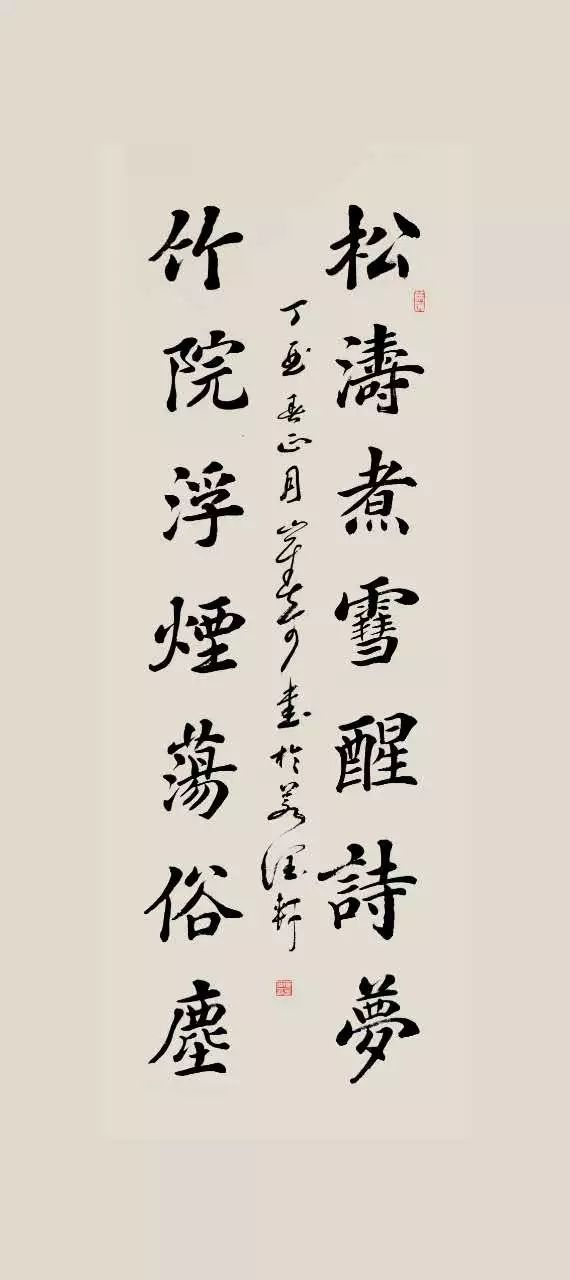 松濤煮雪醒詩夢
丁酉春正月崔志書於若潭軒
竹院浮煙蕩俗塵